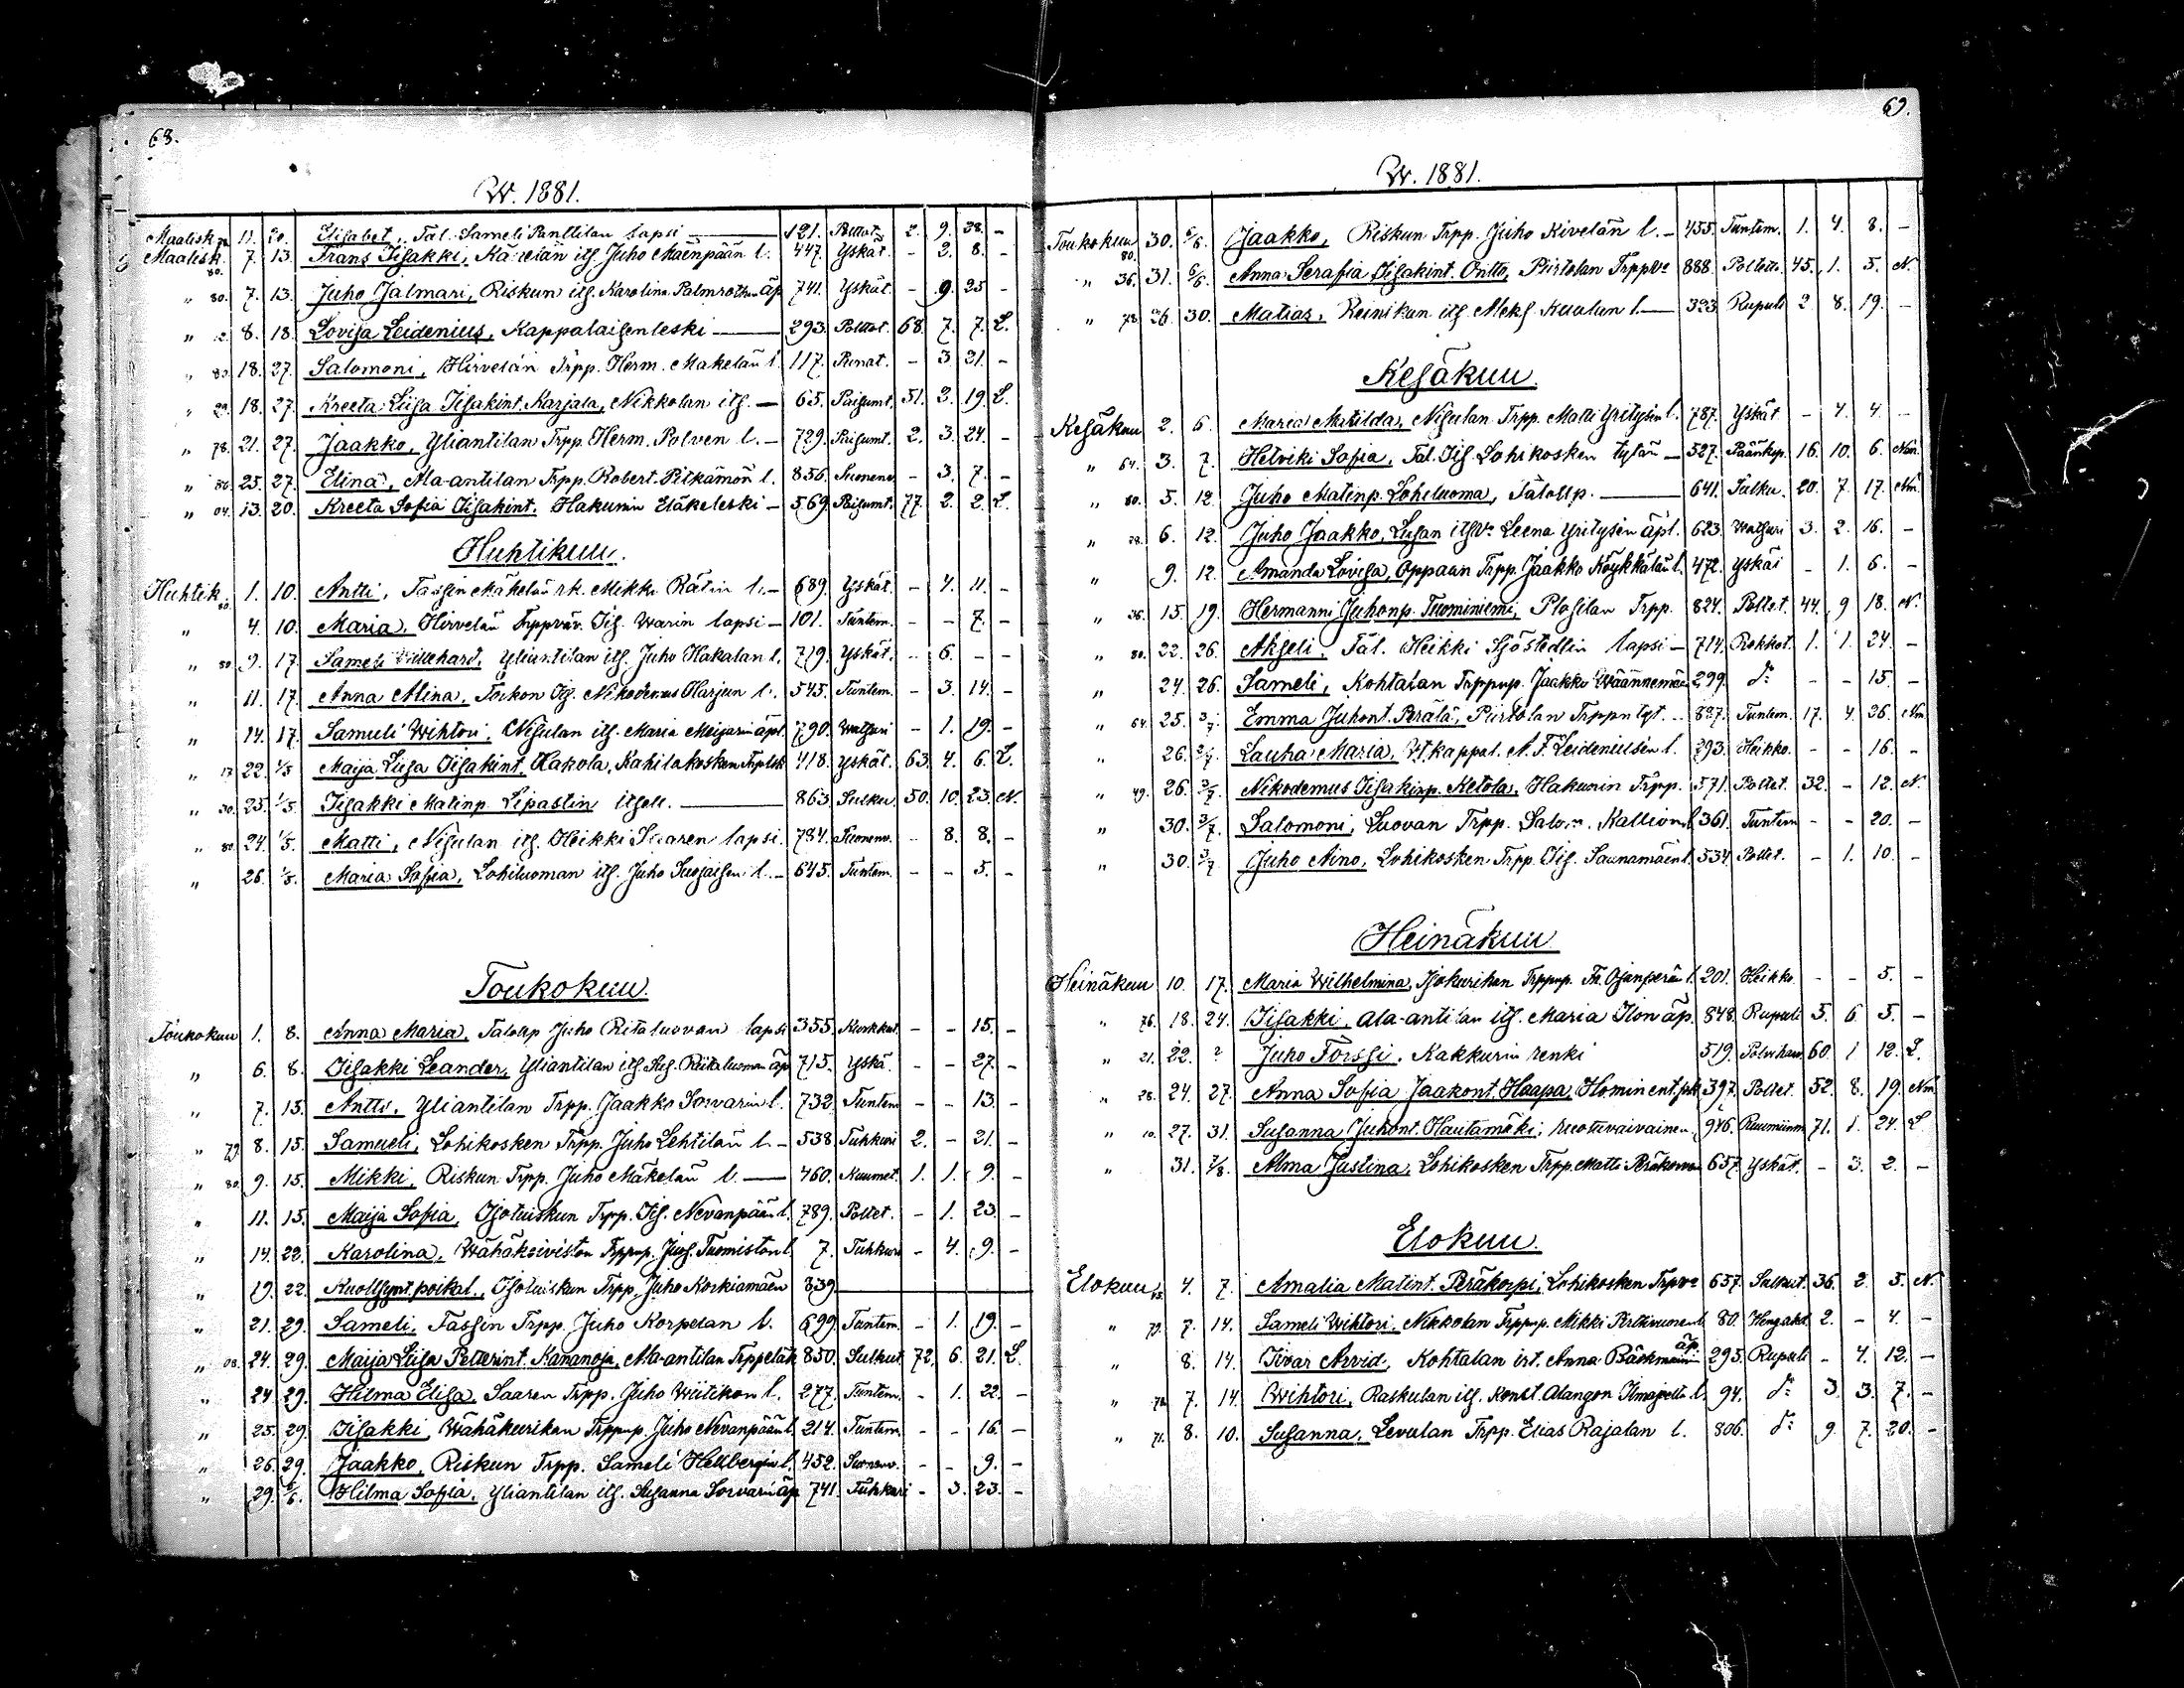 68.
W. 1881.
Maalisk. 11. 20. Elisabet, Tal. Sameli Panttilan lapsi — 121. Polttot. 2. 9. 28. -
Maalisk. 80. 7. 13. Frans Iisakki, Kärelän its. Juho Mäenpään l. 447. Yskät. - 2. 8. -
" 80. 7. 13. Juho Jalmari, Riskun its. Karolina Palmrothin äp 741. Yskät. - 9. 25 -
" 12. 8. 18. Lovisa Leidenius, Kappalaisenleski — 293. Polttot. 68. 7. 7. L.
" 80. 18. 27. Salomoni, Hirvelän Trpp. Herm. Mäkelän l. 117. Punat. - 3 21. -
" 29. 18. 27. Kreeta Liisa Iisakint. Karjala, Nikkolan its. — 65. Paisumt. 51. 2. 19. L.
" 78. 21. 27. Jaakko, Yliantilan Trpp. Herm. Polven l. - 729. Paisumt. 2. 3. 24. -
" 80. 25. 27. Elina, Ala-antilan Trpp. Robert Pitkämön l. 856. Suonenv. - 3. 7. -
" 04. 13. 20. Kreeta Sofia Iisakint. Hakunin Eläkeleski - 569. Paisumt. 77. 2. 2. L.
Huhtikuu.
Huhtik. 80. 1. 10. Antti, Tassin Mäkelän rk. Mikki Rätin l. - 689. Yskät. - 4. 11. -
" 4. 10. Maria, Hirvelän Trppväv. Iis. Warin lapsi - 101. Tuntem. - - 7. -
" 80 9. 17. Sameli Willehard, Yliantilan its. Juho Hakalan l. 719. Yskät. - 6. - -
" 11. 17. Anna Alina, Torkon Iis. Nikodemus Harjun l. 545. Tuntem. - 3. 14. -
" 14. 17. Samuli Wihtori, Nisulan its. Maria Meijarin äpl. 790. Watsuri - 1. 19. -
" 17 22. 1/5 Maija Liisa Iisakint. Hakola, Kahilakosken Trplsk 418. Yskät. 63. 4. 6. L.
" 30. 23. 1/5. Iisakki Matinp. Lipastin itsell. — 863. Sulku. 50. 10. 23. N.
" 80. 24. 1/5. Matti, Nisulan its. Heikki Saaren lapsi. 784. Suonenv. - 8. 8. -
" 26. 1/5. Maria Sofia, Lohiluoman its. Juho Suojaisen l. - 645. Tuntem. - - 5. -
Toukokuu.
Toukokuu 1. 8. Anna Maria, Talollp Juho Ritaluovan lapsi 355. Kurkkut. - - 15. -
" 6. 8. Iisakki Leander, Yliantilan its. Sus. Riitaluoman äp 715. Yskä. - - 27. -
" 7. 15. Antti, Yliantilan Trpp. Jaakko Sorvarin l. 732. Tuntem - - 13. -
" 79 8. 15. Samueli, Lohikosken Trpp. Juho Lehtilän l. - 538 Tuhkuri 2. - 21. -
" 80. 9. 15. Mikki, Riskun Trpp. Juho Mäkelän l. — 460. Kuumet. 1. 1. 9. -
" 11. 15. Maija Sofia, Isoluiskun Trpp. Iis. Nevanpään l. 789. Poltet. - 1. 23. -
" 14. 22. Karolina, Wähäkoiviston Trppnp. Jus. Tuomiston l. 7. Tuhkuri - 4. 9. -
" 19. 22. Kuollsynt. poikal., Isoluiskun Trpp. Juho Korkiamäen 839
" 21. 29. Sameli, Tassin Trpp. Juho Korpelan l. 699. Tuntem. - 1. 19. -
" 08. 24. 29. Maija Liisa Petterint. Kananoja, Ala-antilan Trppeläk 850. Sulkut 72. 6. 21. L.
" 24 29. Hilma Elisa, Saaren Trpp. Juho Wiitikon l. 277. Tuntem. - 1. 22. -
" 25. 29. Iisakki, Wähäkeurikan Trppnp. Juho Nevanpään l. 214. Tuntem. - - 16. -
" 26. 29. Jaakko, Riskun Trpp. Sameli Hellbergin l. 452. Suonenv. - - 9. -
" 29. 5/6. Hilma Sofia, Yliantilan its. Susanna Sorvarin äp 741. Tuhkuri - 3. 23. -
69.
W. 1881.
Toukokuu 80. 30. 5/6. Jaakko, Riskun Trpp. Juho Kivelän l. - 455. Tuntem. 1. 4. 8. -
" 36. 31. 5/6. Anna Serafia Iisakint. Onitto, Piirtolan Trppvo 888. Poltetti. 45. 1. 5. N.
" 78 26. 30. Matias, Reinikan its. Aleks. Kuulun l. — 323. Rupuli 2 8. 19. -
Kesäkuu.
Kesäkuu 2. 6. Maria Matilda, Nisulan Trpp. Matti Yritysin l. 787. Yskät - 4. 4. -
" 64. 3. 7. Helviki Sofia, Tal. Iis. Lohikosken tytär — 527. Päänkip. 16. 10. 6. Nm.
" 80. 5. 12. Juho Matinp. Lohiluoma, Talollp. — 641. Sulku. 20. 7. 17. Nm.
" 78. 6. 12. Juho Jaakko, Lusan itsvo Leena Yritysin äpl. 623. Watsuri 3. 2. 16. -
" 9. 12. Amanda Lovisa, Oppaan Trpp. Jaakko Köykkälän l. 472. Yskät - 1. 6. -
" 36. 15. 19. Hermanni Juhonp. Tuominiemi, Plosilan Trpp. 824. Poltet. 44. 9 18. N.
" 80. 22. 26. Akseli, Tal. Heikki Sjöstedtin lapsi - 714. Rokkot. 1. 1. 24. -
" 24. 26. Sameli, Kohtalan Trppnp. Jaakko Wäännemäen 299. d:o - - 15. -
" 64. 25. 3/7. Emma Juhont. Perälä, Piirtolan Trppn tyt. 887. Tuntem. 17. 4. 26. Nm
" 26. 3/7. Lauha Maria, Wt. kappal. A. F. Leideniusen l. 293. Heikko. - - 16. -
" 49. 26. 3/7. Nikodemus Iisakinp. Ketola, Hakunin Trpp. 571. Poltet. 32. - 12. N.
" 30. 3/7. Salomoni, Luovan Trpp. Salom. Kallion l. 361. Tuntem - - 20. -
" 30. 3/7. Juho Aino, Lohikosken Trpp. Iis. Saunamäen l. 534. Poltet. - 1. 10. -
Heinäkuu
Heinäkuu 10. 17. Maria Wilhelmina, Isokeurikan Trppnp. Fr. Ojanperän l. 201. Heikko. - - 5. -
" 76. 18. 24. Iisakki, Ala-antilan its. Maria Ilon äp. 848. Rupuli 5. 6. 5. -
" 21. 22. ? Juho Forssi, Kakkurin renki 519. 60. 1 12. L.
" 28. 24. 27. Anna Sofia Jaakont. Haapa, 397. Poltet. 52. 8. 19. Nm
" 10. 27. 31. Susanna Juhont. Hautamäki, ruotuvaivainen 946. 71. 1. 24. L
" 31. 7/8. Alma Justina, Lohikosken Trpp. Matti Peräkorven 657. Yskät. - 3. 2. -
Elokuu.
Elokuu 4. 7. Amalia Matint. Peräkorpi, Lohikosken Trpvo 657. Sulkut. 36. 2. 3. N.
" 79. 7. 14. Sameli Wihtori, Nikkolan Trppnp. Mikki Pirttivuoren l. 80. Hengaht 2. - 4. -
" 8. 14. Iivar Arvid, Kohtalan irt. Anna Bäckmanin äp. 295. Rupuli - 4. 12. -
" 78. 7. 14. Wihtori, Raskulan its. Konst. Alangon Ilmajoelta l. 94. d:o 3. 3. 7. -
" 71. 8. 10. Susanna, Levulan Trpp. Elias Rajalan l. 806. d:o 9. 7. 20. -